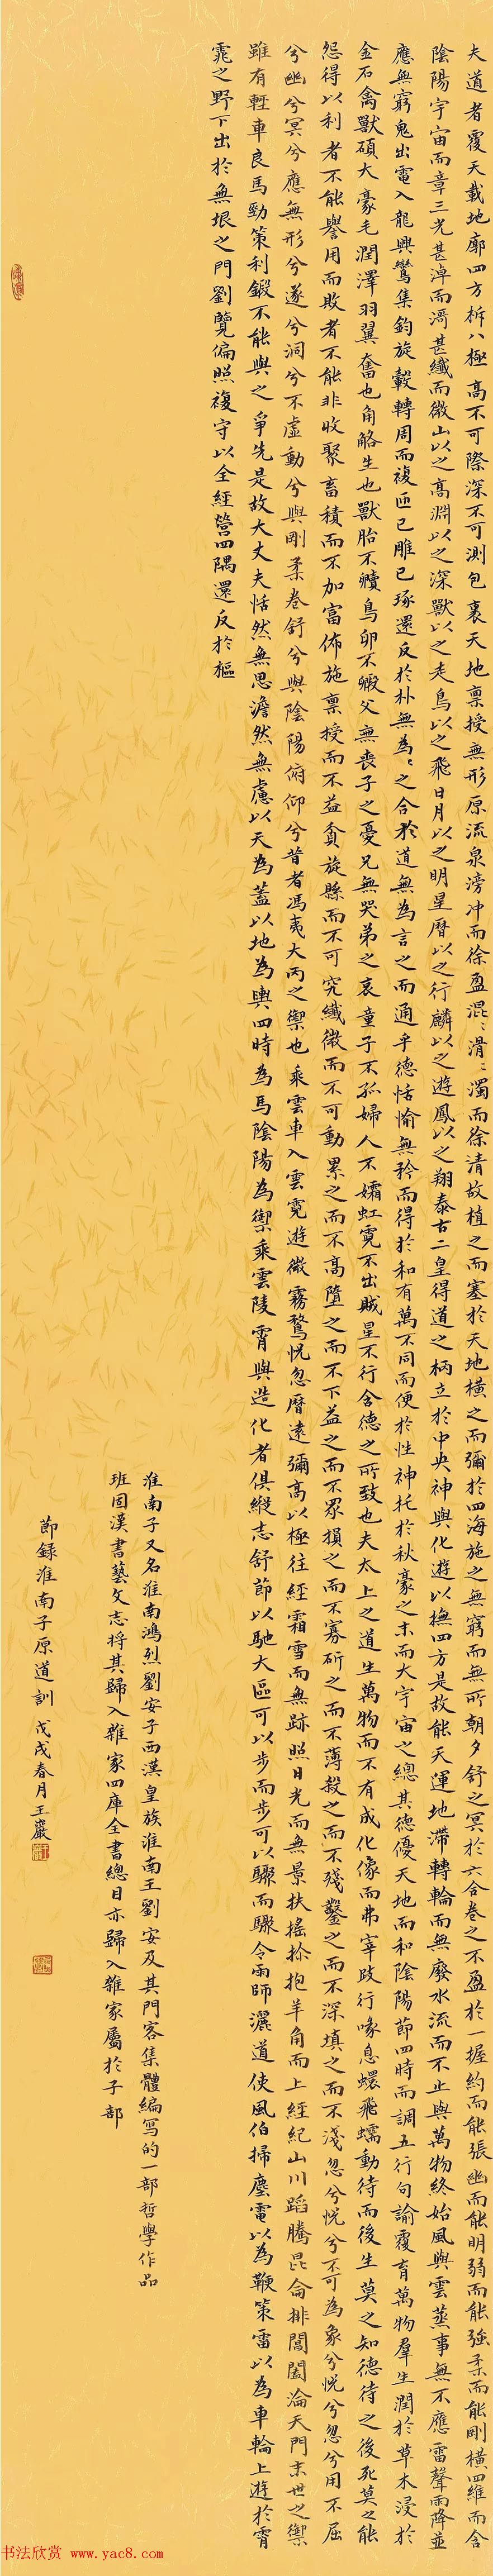 夫道者覆天載地廓四方柝八極高不可際深不可測包裹天地稟授無形原流泉滂冲而徐盈混〻滑〻濁而徐清故植之而塞於天地橫之而彌於四海施之無窮而無所朝夕舒之冥於六合卷之不盈於一握約而能張幽而能明弱而能強柔而能剛橫四維而含
陰陽宇宙而章三光甚淖而滒甚纖而微山以之高淵以之深獸以之走鳥以之飛日月以之明星曆以之行麟以之遊鳳以之翔泰古二皇得道之柄立於中央神與化遊以撫四方是故能天運地滯轉輪而無廢水流而不止與萬物終始風與雲蒸事無不應雷聲雨降並
應無窮鬼出電入龍興鸞集鈞旋轂轉周而複匝已雕已琢還反於朴無為〻之合於道無為言之而通乎德恬愉無矜而得於和有萬不同而便於性神托於秋豪之末而大宇宙之總其德優天地而和陰陽節四時而調五行句諭覆育萬物羣生潤於草木浸於
金石禽獸碩大豪毛潤澤羽翼奮也角觡生也獸胎不贕鳥卵不毈父無喪子之憂兄無哭弟之哀童子不孤婦人不孀虹霓不出賊星不行含德之所致也夫太上之道生萬物而不有成化像而弗宰跂行喙息蠉飛蠕動待而後生莫之知德待之後死莫之能
怨得以利者不能譽用而敗者不能非收聚畜積而不加富佈施稟授而不益貧旋縣而不可究纖微而不可動累之而不高墮之而不下益之而不眾損之而不寡斫之而不薄殺之而不殘鑿之而不深填之而不淺忽兮怳兮不可為象兮怳兮忽兮用不屈
兮幽兮冥兮應無形兮遂兮洞兮不虛動兮與剛柔卷舒兮與陰陽俯仰兮昔者馮夷大丙之禦也乘雲車入雲霓遊微霧騖怳忽曆遠彌高以極往經霜雪而無跡照日光而無景扶搖抮抱羊角而上經紀山川蹈騰昆侖排閶闔淪天門末世之禦
雖有輕車良馬勁策利鍛不能與之爭先是故大丈夫恬然無思澹然無慮以天為蓋以地為輿四時為馬陰陽為禦乘雲陵霄與造化者俱縱志舒節以馳大區可以步而步可以驟而驟令雨師灑道使風伯掃塵電以為鞭策雷以為車輪上遊於霄
雿之野下出於無垠之門劉覽偏照複守以全經營四隅還反於樞
淮南子又名淮南鴻烈劉安子西漢皇族淮南王劉安及其門客集體編寫的一部哲學作品
班固漢書藝文志將其歸入雜家四庫全書總目亦歸入雜家屬於子部
節錄淮南子原道訓 戊戌春月王巖
书法欣赏 www.yac8.com